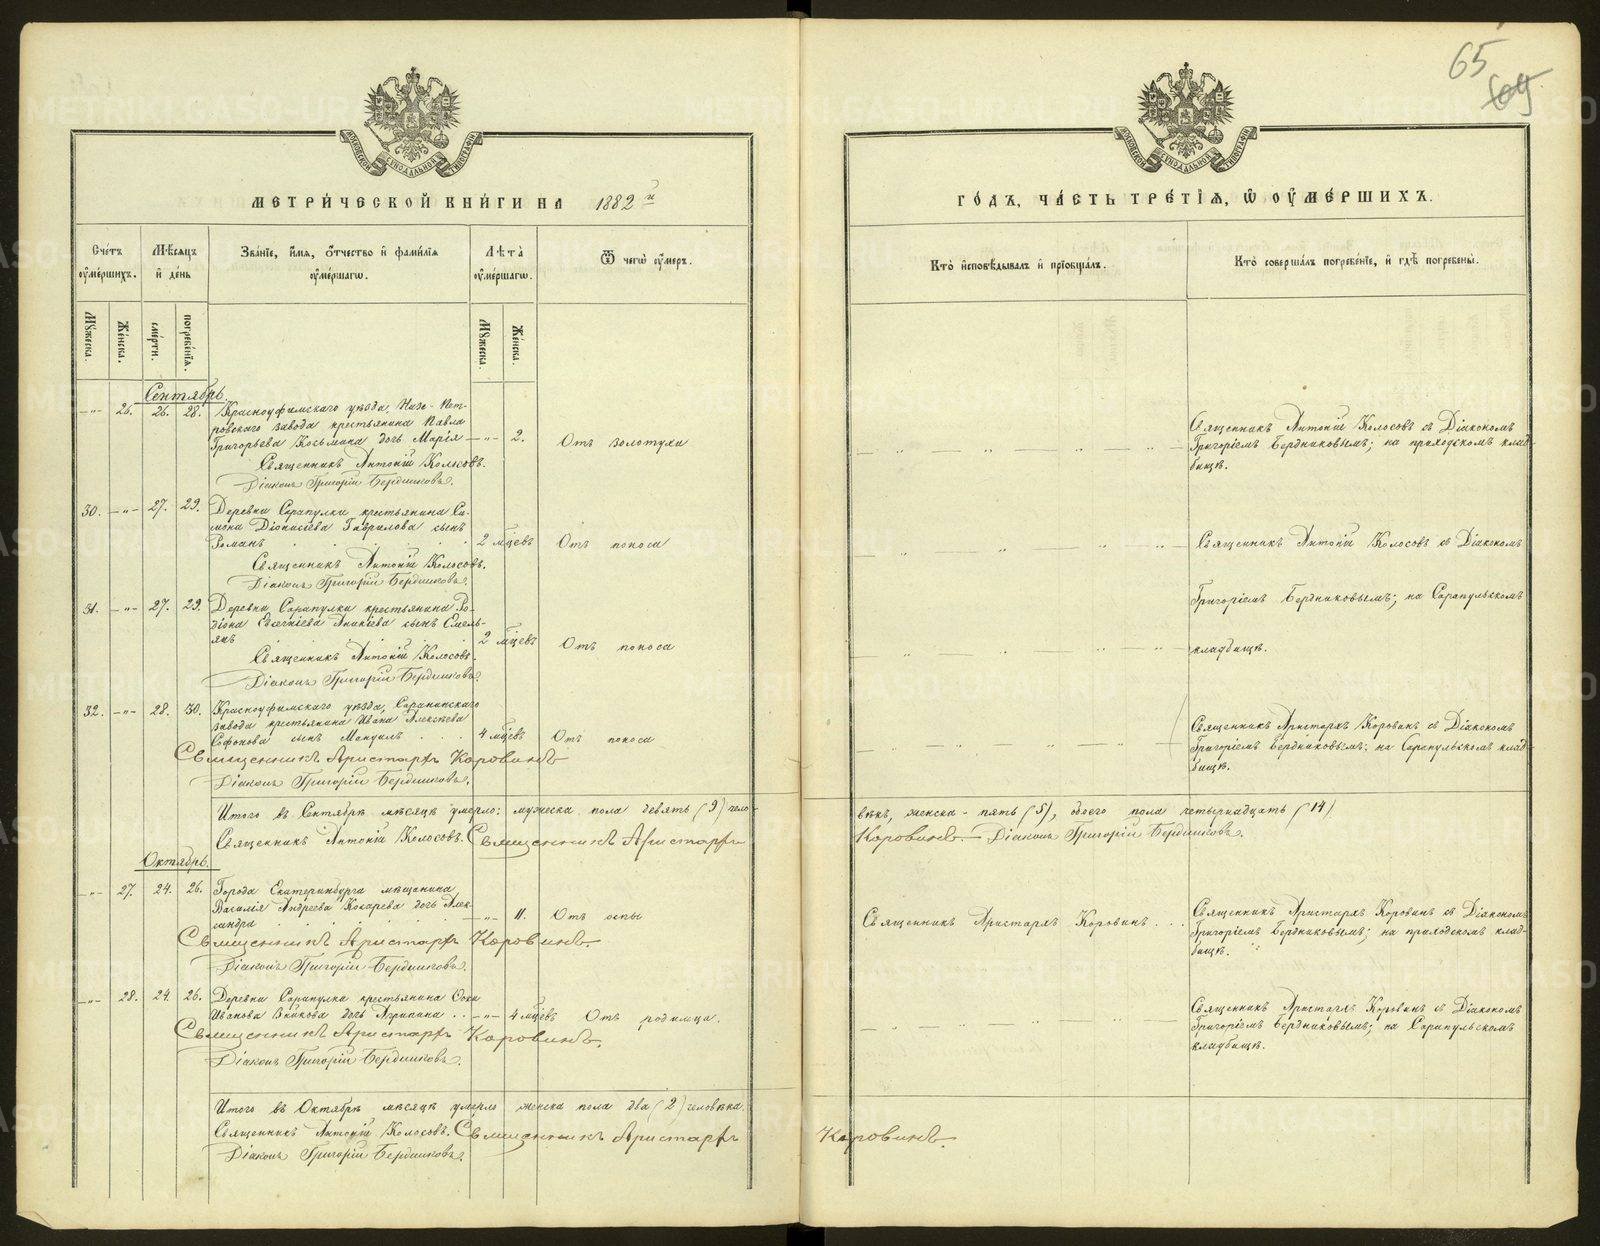 65
МЕТРИЧЕСКОЙ КНИГИ НА 1882й
Счетъ умершихъ.
Мѣсяцъ и день
Званіе, имя, отчество и фамилія умершагѡ.
Лѣта умершагѡ.
Ѿ чегѡ умеръ.
Мужеска.
Женска.
смерти.
погребенія.
Мужеска.
Женска.
Сентябрь.
-"- 26. 26. 28. Красноуфимскаго уѣзда, Низе-Пет-
ровскаго завода крестьянина Павла
Григорьева Косьмина дочь Марія -"- 2. Отъ золотухи
Священникъ Антоній Колосовъ.
Діаконъ Григорій Бердниковъ.
30. -"- 27. 29. Деревни Сарапулки крестьянина Си-
мона Діонисіева Гаврилова сынъ
Романъ 2 мцевъ Отъ поноса
Священникъ Антоній Колосовъ.
Діаконъ Григорій Бердниковъ.
31. -"- 27. 29. Деревни Сарапулки крестьянина Ро-
діона Евгеніева Ананіева сынъ Емель-
янъ 2 мцевъ Отъ поноса
Священникъ Антоній Колосовъ.
Діаконъ Григорій Бердниковъ.
32. -"- 28. 30. Красноуфимскаго уѣзда, Саранинскаго
завода крестьянина Ивана Алексѣева
Софонова сынъ Мануилъ 4 мцевъ Отъ поноса
Священникъ Аристархъ Коровинъ
Діаконъ Григорій Бердниковъ.
Итого въ Сентябрѣ мѣсяцѣ умерло: мужеска пола девять (9) чело-
Священникъ Антоній Колосовъ. Священникъ Аристархъ
Октябрь.
-"- 27. 24. 26. Города Екатеринбурга мѣщанина
Василія Андреева Кокарева дочь Алек-
сандра -"- 11. Отъ оспы
Священникъ Аристархъ Коровинъ
Діаконъ Григорій Бердниковъ.
-"- 28. 24. 26. Деревни Сарапулка крестьянина
Иванова дочь Агрипина -"- 4 мцевъ Отъ родимца.
Священникъ Аристархъ Коровинъ.
Діаконъ Григорій Бердниковъ.
Итого въ Октябрѣ мѣсяцѣ умерло женска пола два (2) человѣка.
Священникъ Антоній Колосовъ. Священникъ Аристархъ
Діаконъ Григорій Бердниковъ.
ГОДЪ, ЧАСТЬ ТРЕТІЯ, Ѡ УМЕРШИХЪ.
Кто исповѣдывалъ и пріобщалъ.
Кто совершалъ погребеніе, и гдѣ погребены.
Священникъ Антоній Колосовъ съ Діакономъ
Григоріемъ Бердниковымъ; на приходскомъ клад-
бищѣ.
Священникъ Антоній Колосовъ съ Діакономъ
Григоріемъ Бердниковымъ; на Сарапульскомъ
кладбищѣ.
Священникъ Аристархъ Коровинъ съ Діакономъ
Григоріемъ Бердниковымъ; на Сарапульскомъ клад-
бищѣ.
вѣкъ, женска - пять (5), обоего пола четырнадцать (14)
Коровинъ. Діаконъ Григорій Бердниковъ.
Священникъ Аристархъ Коровинъ.
Священникъ Аристархъ Коровинъ съ Діакономъ
Григоріемъ Бердниковымъ; на приходскомъ клад-
бищѣ.
Священникъ Аристархъ Коровинъ съ Діакономъ
Григоріемъ Бердниковымъ; на Сарапульскомъ
кладбищѣ.
Коровинъ.
METRIKI.GASO-URAL.RU